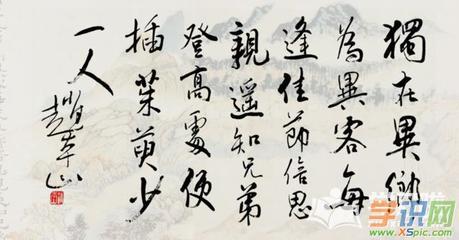 獨在異鄉
為異客每
逢佳節倍思
親遥知兄弟
登高處便
插茱萸少
一人
学识网
www.XSpic.com